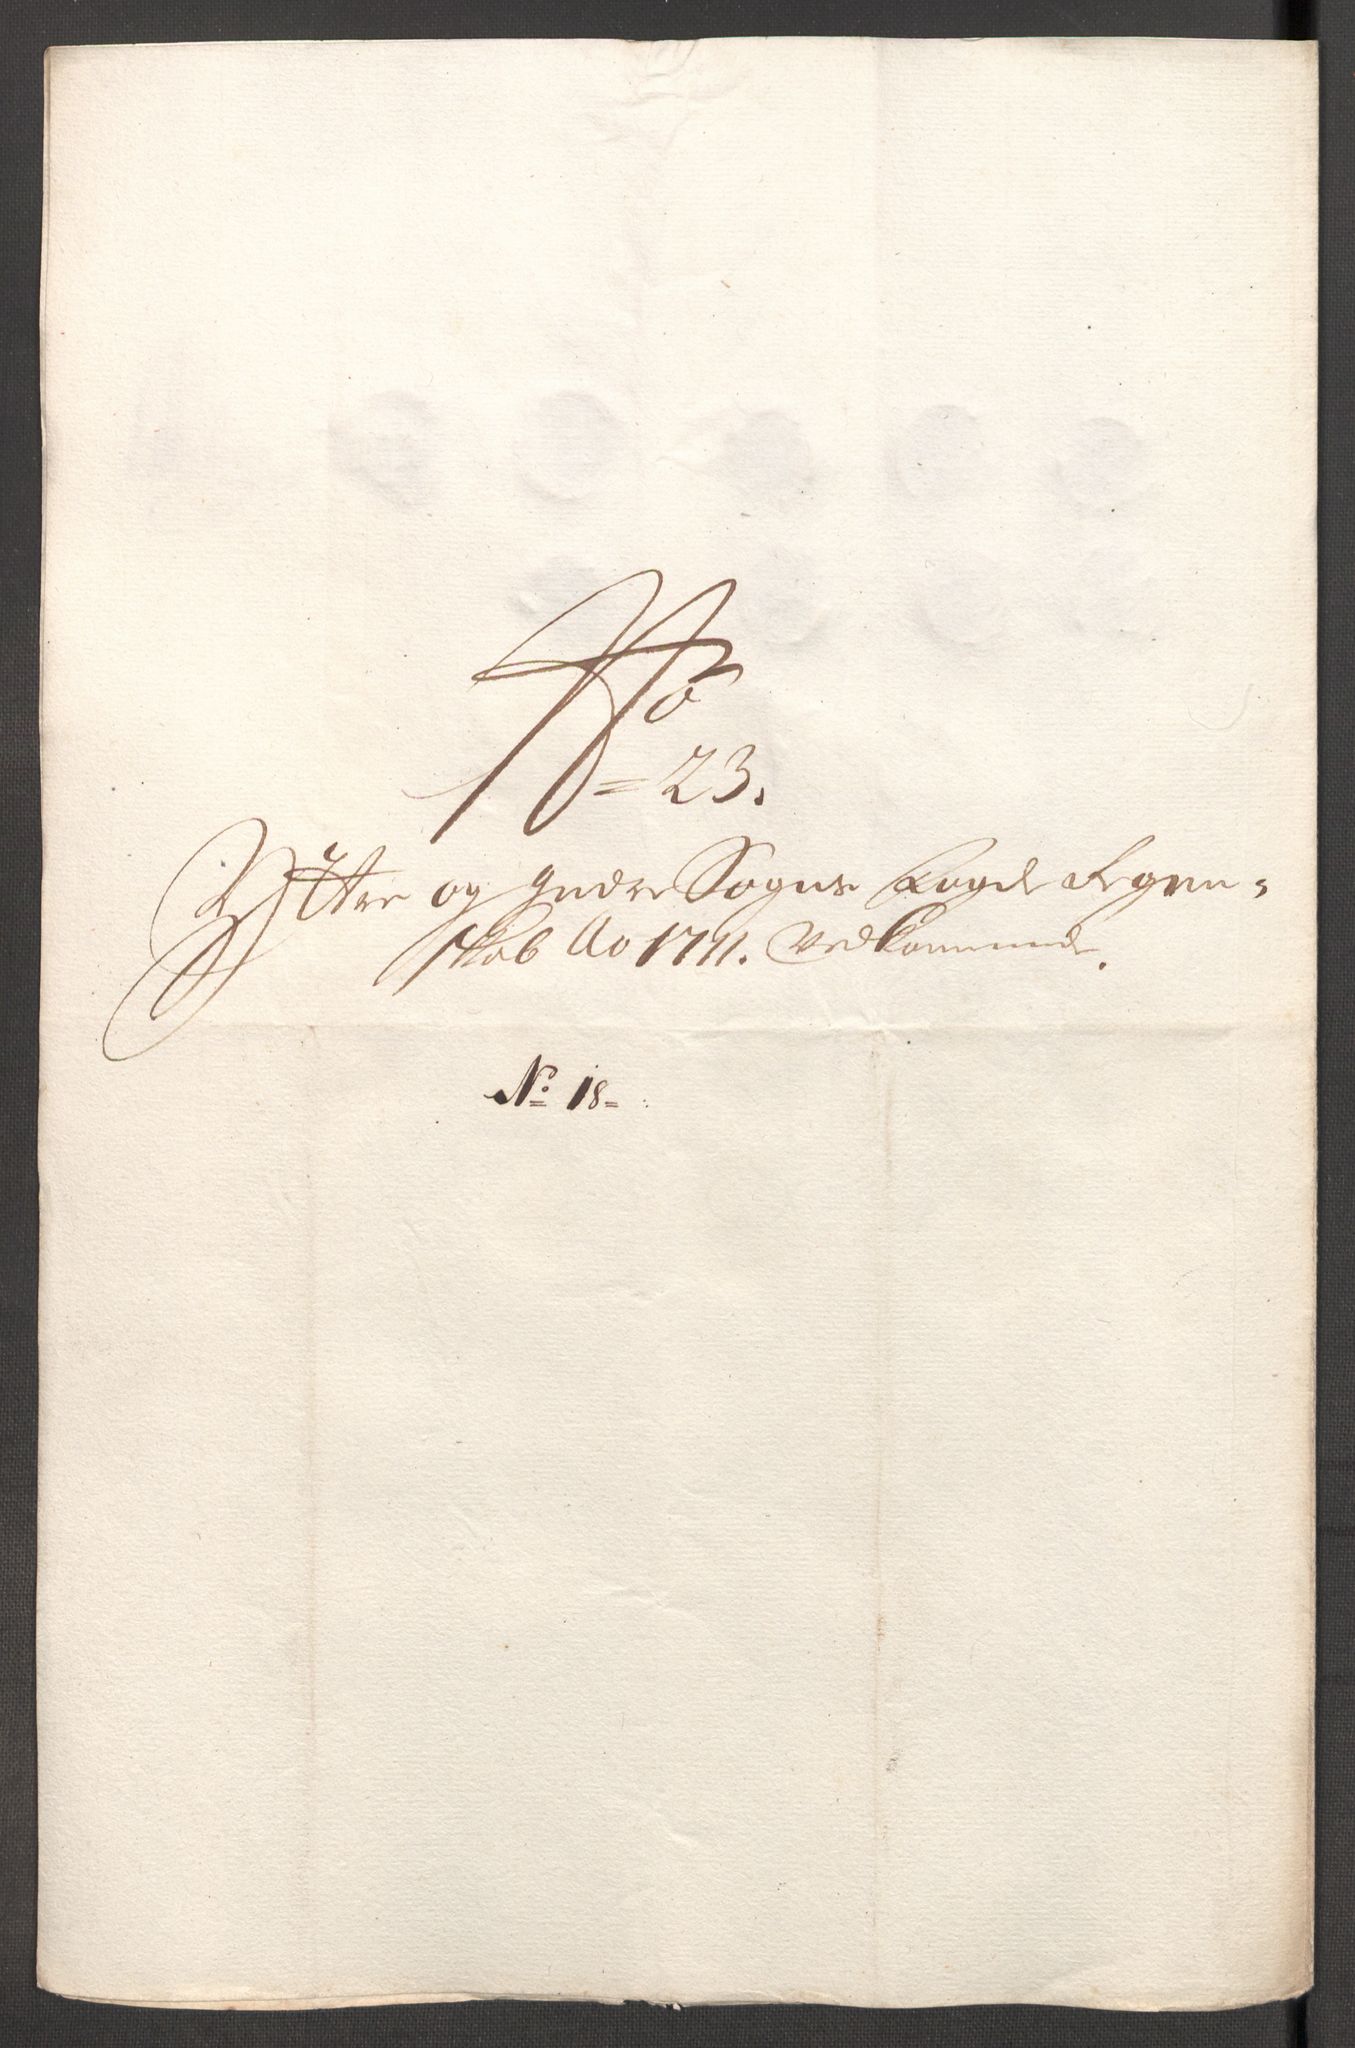 No
= 23.
Yttre og Indre Sogns Fogde Regen=
skab Ao 1711. Vedkommende.
No 18=